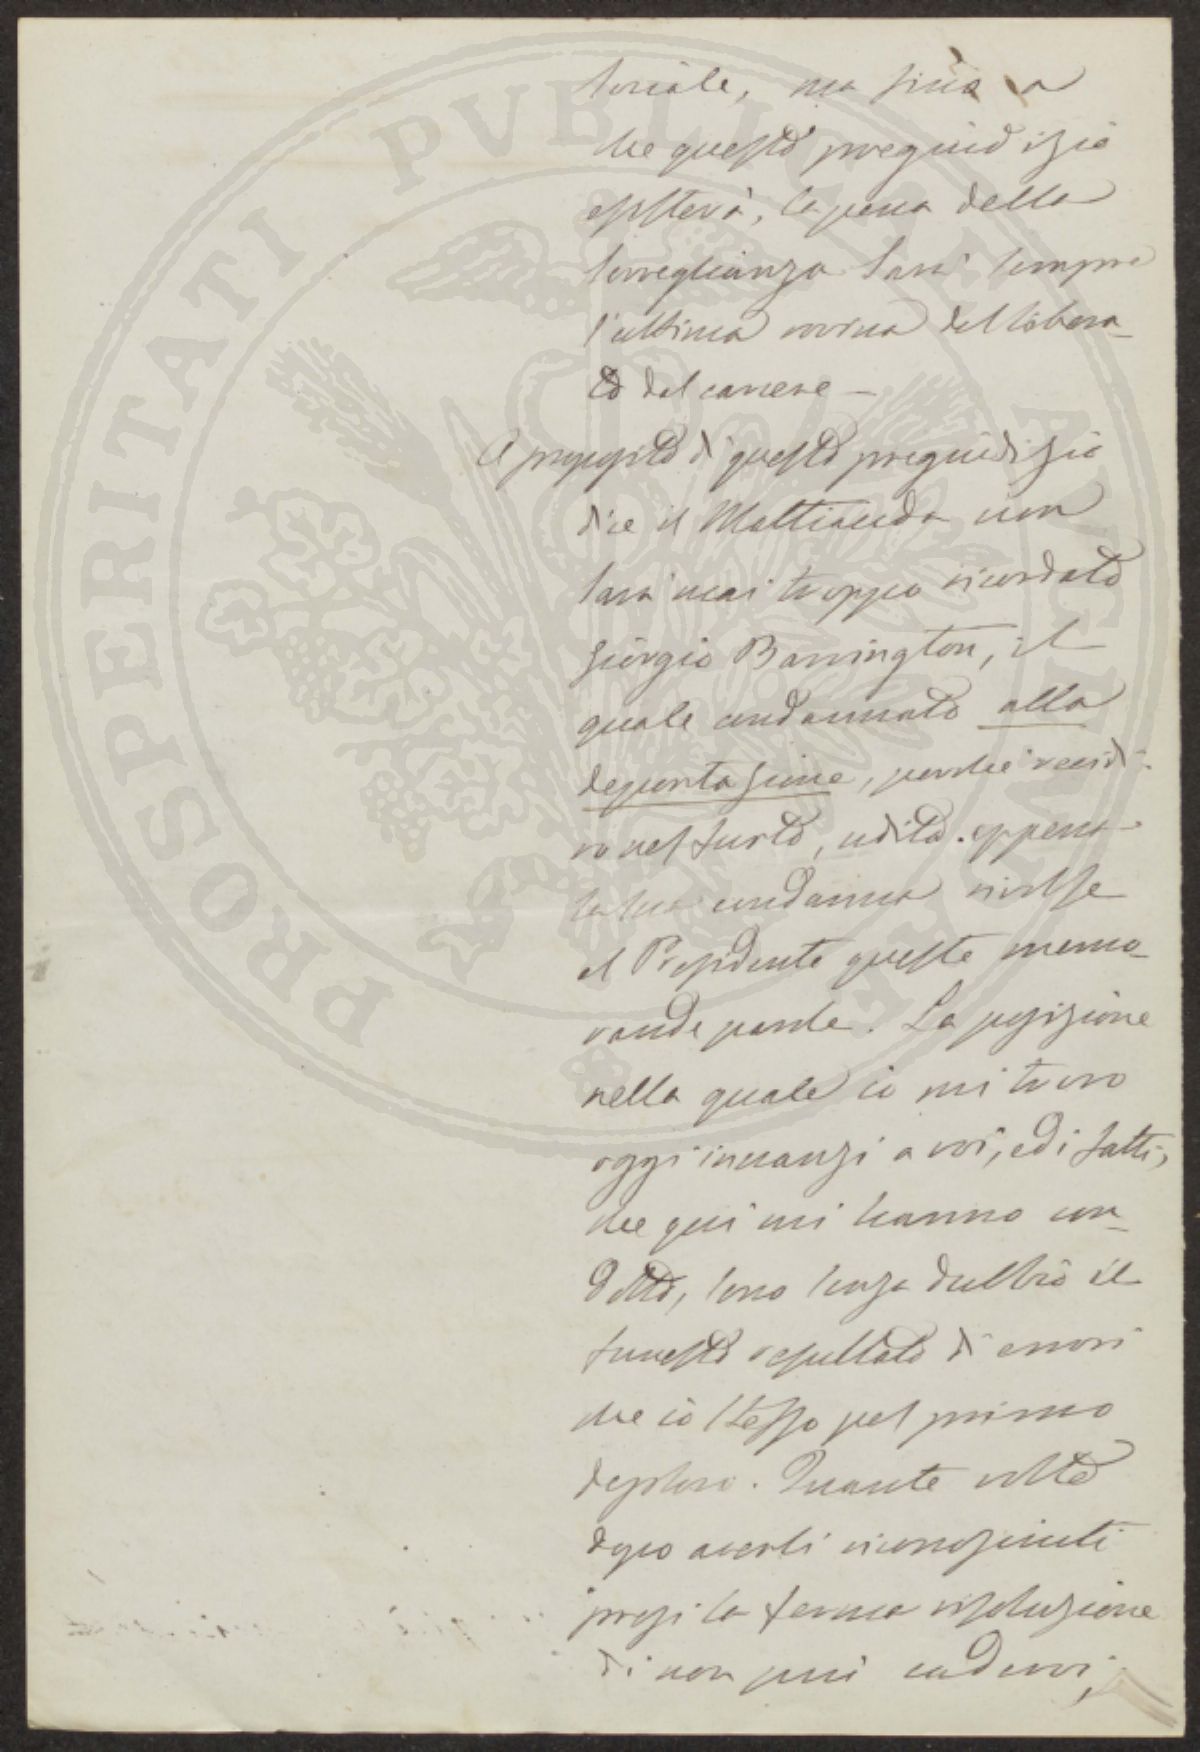 sociale, ma sino a
che questo pregiudizio
esisterà, la pena della
sorveglianza sarà sempre
l'ultima rovina del libera-
to dal carcere —
A proposito di questo pregiudizio
dice il Mattiauda non
sarà mai troppo ricordato
Giorgio Barrington, il
quale condannato alla
deportazione, perché recidi-
vo nel furto, udita appena
la sua condanna rivolse
al Presidente queste memo-
rande parole. La posizione
nella quale io mi trovo
oggi innanzi a voi, ed i fatti,
che qui mi hanno con-
dotto, sono senza dubbio il
funesto resultato di errori
che io stesso pel primo
deploro. Quante volte
dopo averli riconosciuti
presi la ferma risoluzione
di non più cadervi,
PROSPERITATI PVBLICAE AVGENDAE